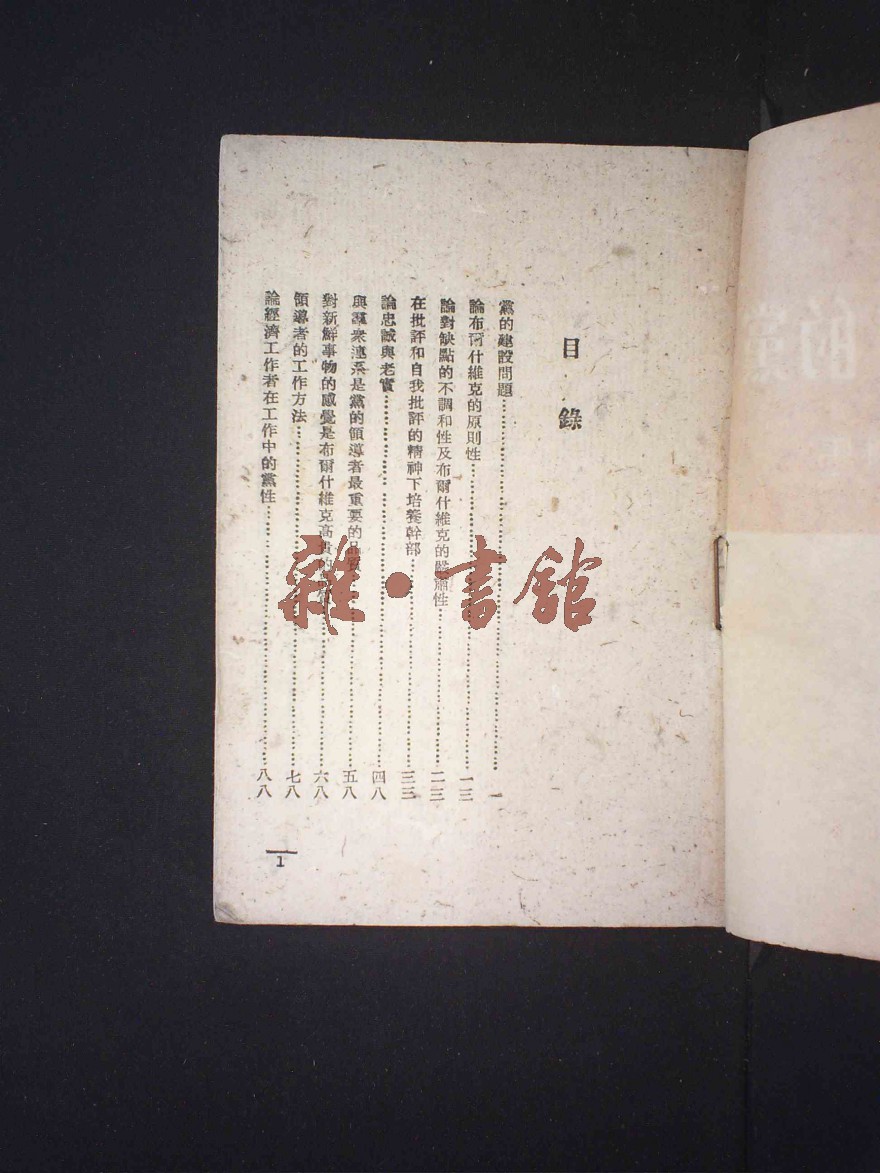 目錄
黨的建設問題⋯⋯⋯⋯⋯⋯⋯⋯⋯⋯一
論布爾什維克的原則性⋯⋯⋯⋯⋯⋯⋯⋯一三
論對缺點的不調和性及布爾什維克的嚴肅性⋯⋯⋯⋯二三
在批評和自我批評的精神下培養幹部⋯⋯⋯⋯⋯⋯三三
論忠誠與老實⋯⋯⋯⋯⋯⋯⋯⋯⋯⋯四八
與羣衆連系是黨的領導者最重要的品質⋯⋯⋯⋯五八
對新鮮事物的感覺是布爾什維克高貴的⋯⋯⋯⋯六八
領導者的工作方法⋯⋯⋯⋯⋯⋯⋯⋯七八
論經濟工作者在工作中的黨性⋯⋯⋯⋯⋯⋯八八
1
雜·書館